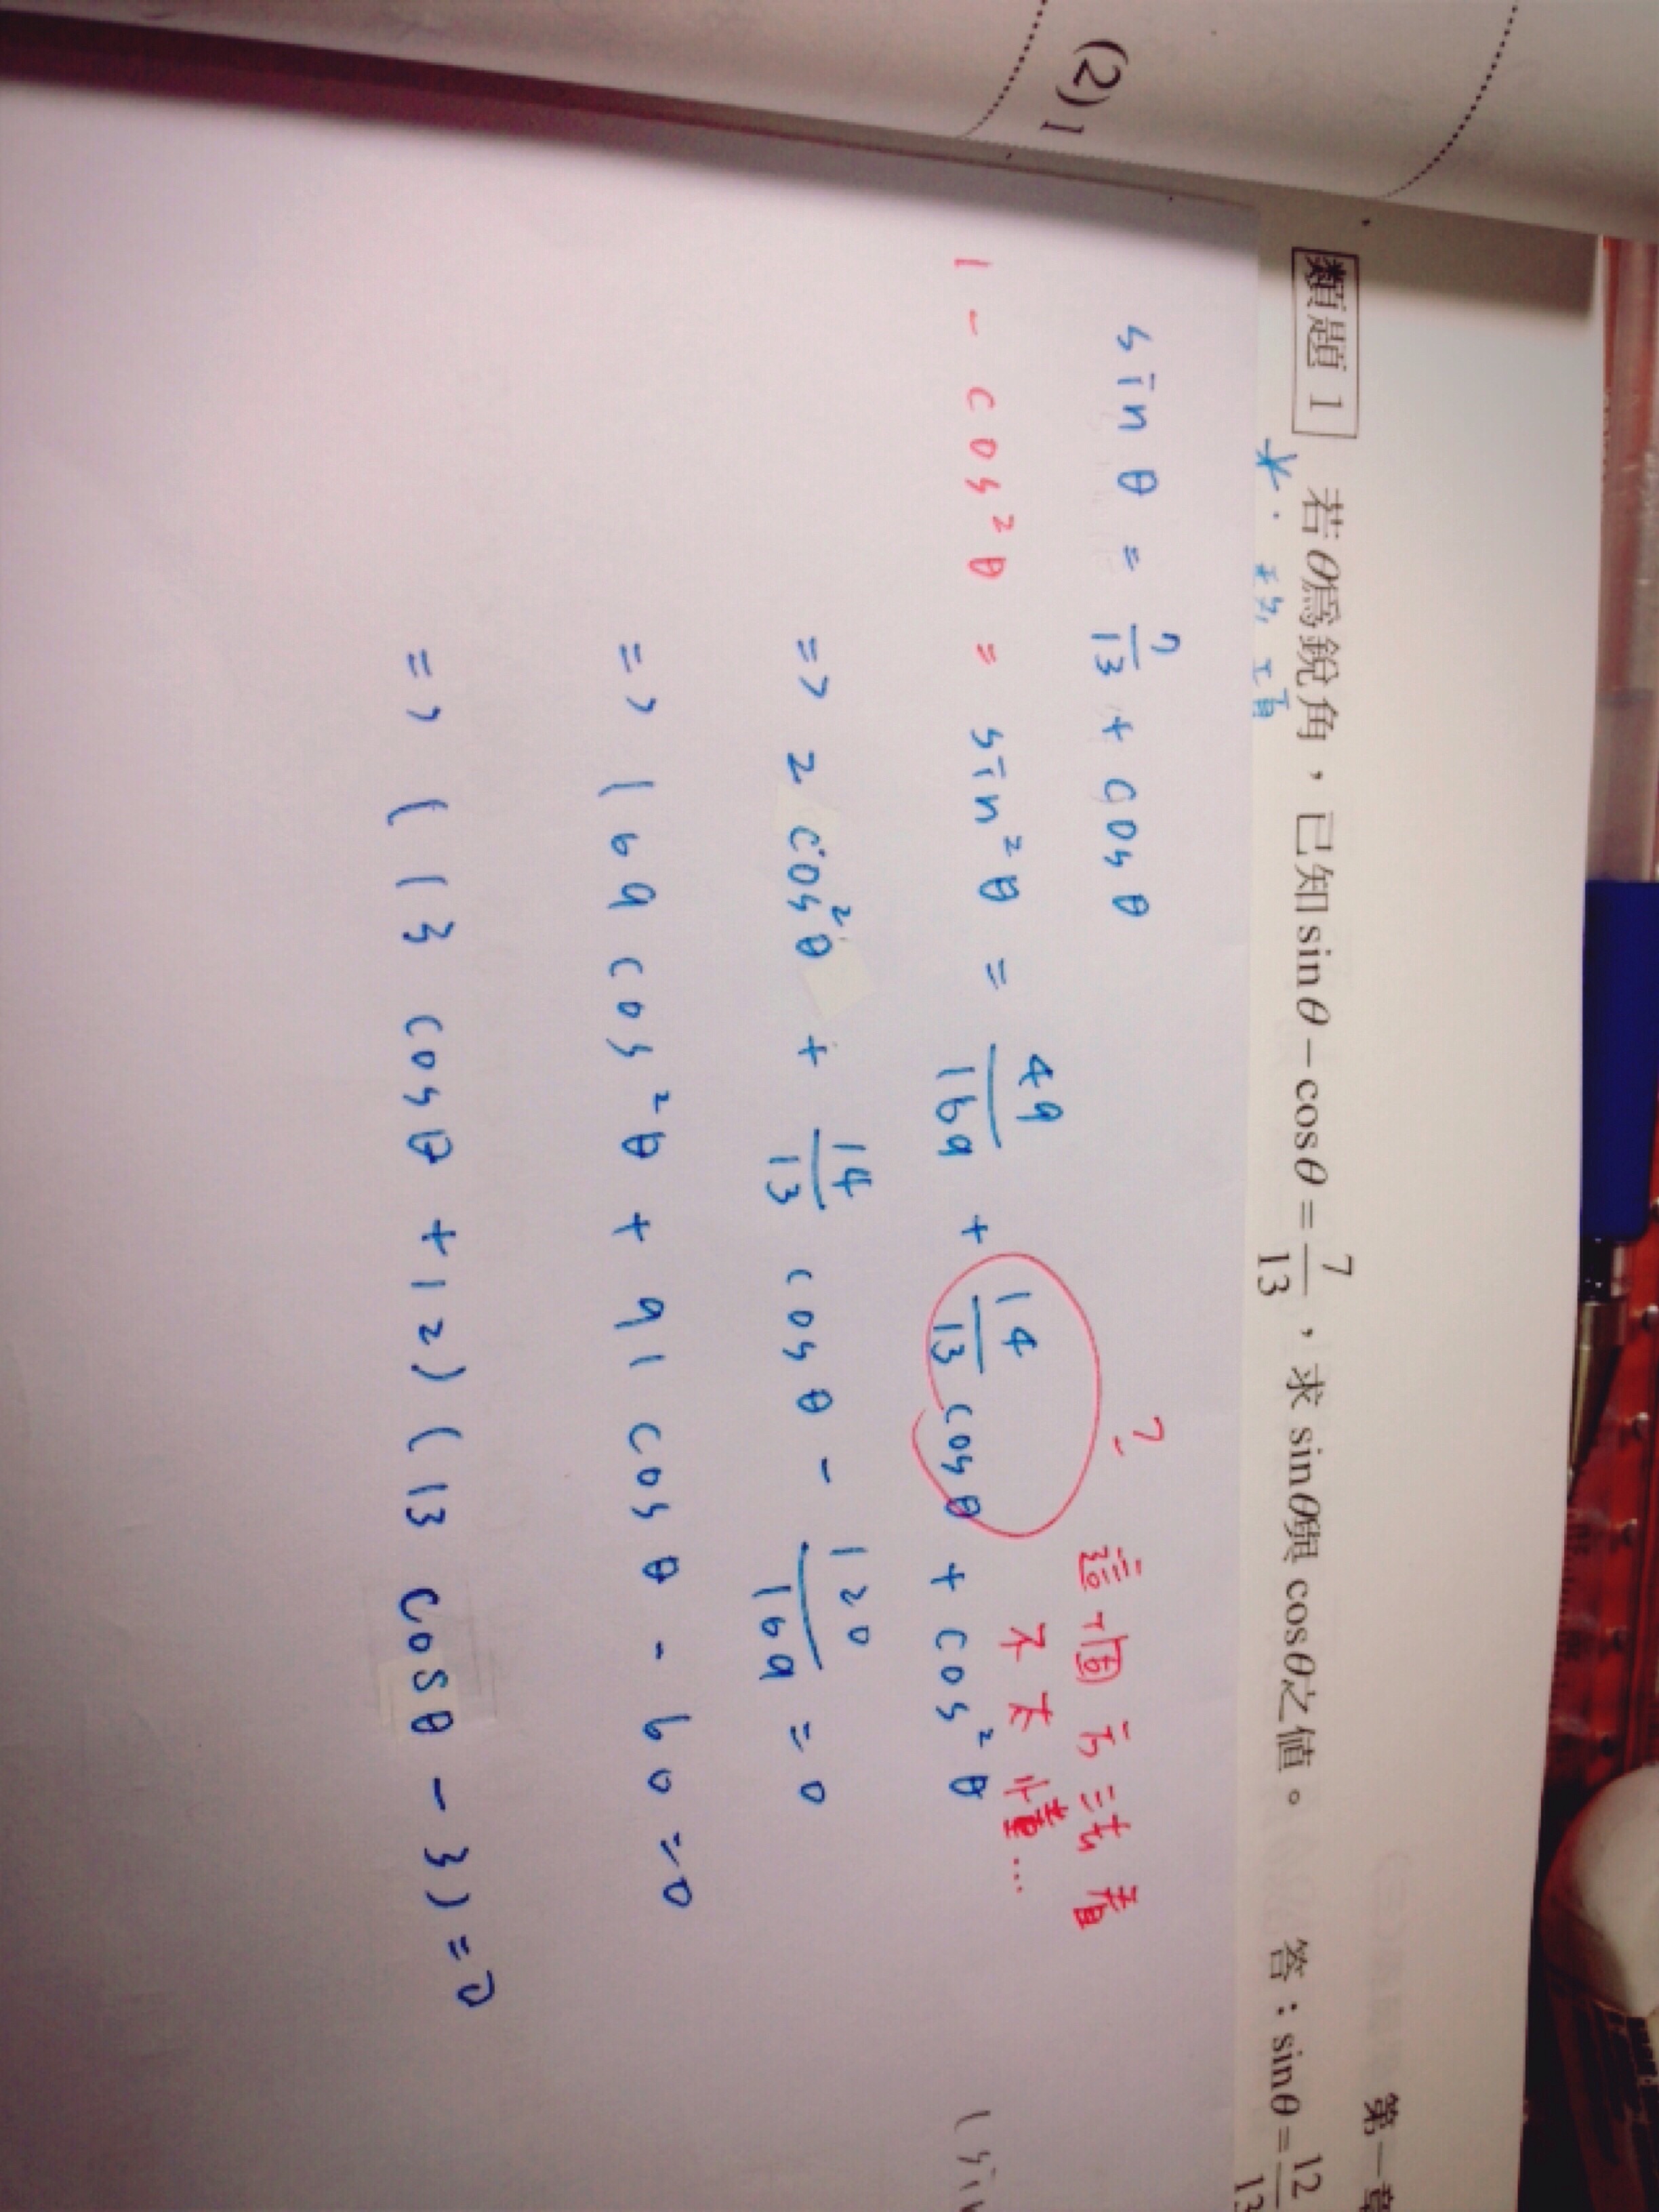 (2) 1
第一章
類題 1 若θ為銳角，已知 sinθ－cosθ＝7/13，求 sinθ與 cosθ之值。 答：sinθ＝12/13
*. 移項
sin θ = 7/13 + cos θ
? 這個方法看
不太懂...
1 - cos²θ = sin²θ = 49/169 + 14/13 cos θ + cos²θ
(sin
=> 2 cos²θ + 14/13 cos θ - 120/169 = 0
=> 169 cos²θ + 91 cos θ - 60 = 0
=> (13 cos θ + 12) (13 cos θ - 3) = 0